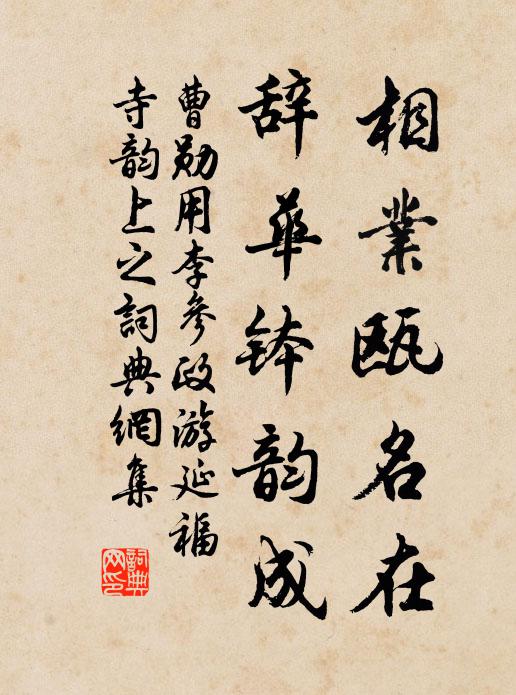 相業甌名在
辞華鉢韵成
曹勛用李參政游延福
寺韵上之詞典網集
詞典
网印